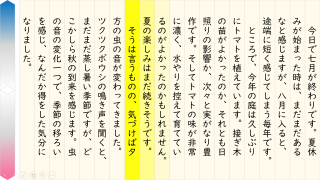 今日で七月が終わりです。夏休
みが始まった時は、まだまだある
なと感じますが、八月に入ると、
途端に短く感じてしまう毎年です。
ところで、今年の庭は久しぶり
にトマトを植えています。接ぎ木
の苗がよかったのか、それとも日
照りの影響か、次々と実がなり豊
作です。そしてトマトの味が非常
に濃く、水やりを控えて育ててい
るのがよかったのかもしれません。
夏の楽しみはまだ続きそうです。
そうは言うものの、気づけば夕
方の虫の音が変わってきました。
ツクツクボウシの鳴き声を聞くと、
まだまだ蒸し暑い季節ですが、ど
こかしら秋の到来を感じます。虫
の音の変化一つで、季節の移ろい
を感じ、なんだか得をした気分に
なりました。